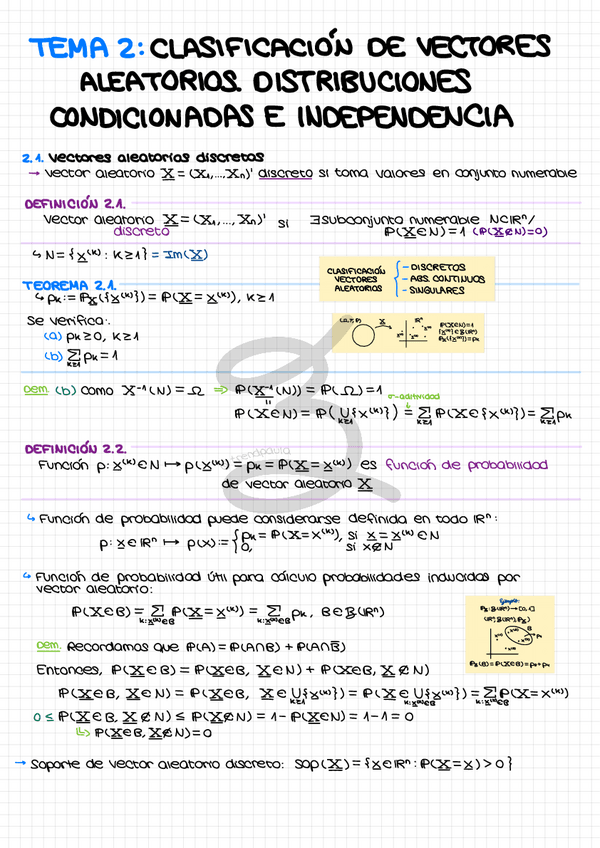 TEMA 2: CLASIFICACIÓN DE VECTORES
ALEATORIOS. DISTRIBUCIONES
CONDICIONADAS E INDEPENDENCIA
2.1. Vectores aleatorios discretos
→ Vector aleatorio X = (X₁,...,Xₙ)' discreto si toma valores en conjunto numerable
DEFINICIÓN 2.1.
Vector aleatorio X = (X₁,...,Xₙ)' si ∃ subconjunto numerable N⊂ℝⁿ/
discreto ℙ(X∈N)=1 (ℙ(X∉N)=0)
↳ N = {x⁽ᵏ⁾ : k≥1} = Im(X)
CLASIFICACIÓN VECTORES ALEATORIOS
- DISCRETOS
- ABS. CONTINUOS
- SINGULARES
TEOREMA 2.1.
↳ pₖ := ℙ_X({x⁽ᵏ⁾}) = ℙ(X = x⁽ᵏ⁾), k≥1
Se verifica:
(a) pₖ ≥ 0, k≥1
(b) ∑_{k≥1} pₖ = 1
X
ℝⁿ
ℙ(X∈N)=1
{x⁽ᵏ⁾}∈B(ℝⁿ)
ℙ_X({x⁽ᵏ⁾})=pₖ
Dem. (b) Como X⁻¹(N) = Ω ⇒ ℙ(X⁻¹(N)) = ℙ(Ω) = 1
σ-aditividad
ℙ(X∈N) = ℙ(⋃_{k≥1}{x⁽ᵏ⁾}) = ∑_{k≥1} ℙ(X∈{x⁽ᵏ⁾}) = ∑_{k≥1} pₖ
DEFINICIÓN 2.2.
trendpaula
Función p: x⁽ᵏ⁾∈N ↦ p(x⁽ᵏ⁾) = pₖ = ℙ(X = x⁽ᵏ⁾) es función de probabilidad
de vector aleatorio X
↳ Función de probabilidad puede considerarse definida en todo ℝⁿ:
p: x∈ℝⁿ ↦ p(x) := { pₖ = ℙ(X = x⁽ᵏ⁾), si x = x⁽ᵏ⁾ ∈ N
0, si x∉N
↳ Función de probabilidad útil para cálculo probabilidades inducidas por
vector aleatorio:
ℙ(X∈B) = ∑_{k:x⁽ᵏ⁾∈B} ℙ(X = x⁽ᵏ⁾) = ∑_{k:x⁽ᵏ⁾∈B} pₖ, B∈B(ℝⁿ)
Ejemplo:
ℙ_X: B(ℝⁿ) → [0,1]
(ℝⁿ, B(ℝⁿ), ℙ_X)
Dem. Recordamos que ℙ(A) = ℙ(A∩B) + ℙ(A∩B̅)
Entonces, ℙ(X∈B) = ℙ(X∈B, X∈N) + ℙ(X∈B, X∉N)
ℙ(X∈B, X∈N) = ℙ(X∈B, X∈⋃_{k≥1}{x⁽ᵏ⁾}) = ℙ(X∈⋃_{k:x⁽ᵏ⁾∈B}{x⁽ᵏ⁾}) = ∑_{k:x⁽ᵏ⁾∈B} ℙ(X = x⁽ᵏ⁾)
0 ≤ ℙ(X∈B, X∉N) ≤ ℙ(X∉N) = 1 - ℙ(X∈N) = 1 - 1 = 0
↳ ℙ(X∈B, X∉N) = 0
→ Soporte de vector aleatorio discreto: Sop(X) = {x∈ℝⁿ : ℙ(X = x) > 0}